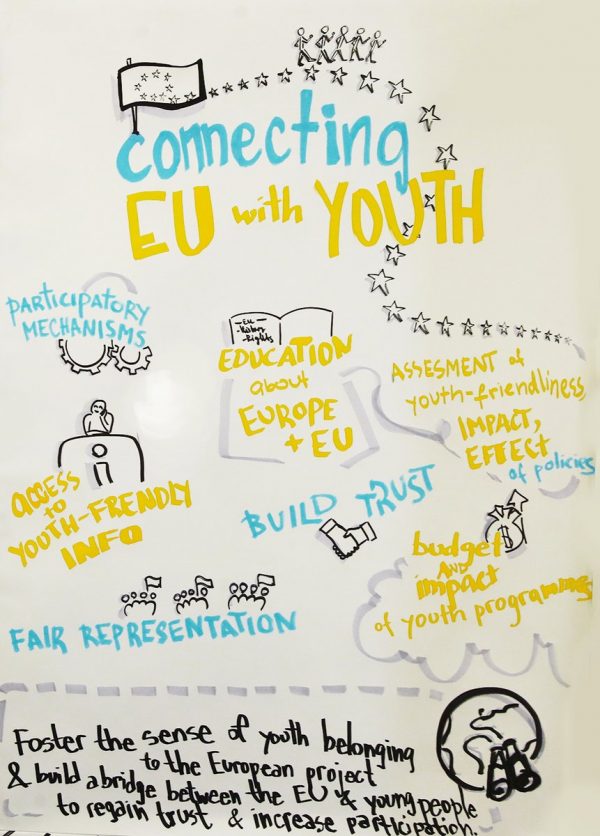 connecting
EU with YOUTH
PARTICIPATORY
MECHANISMS
EU
History
Rights
EDUCATION
about
EUROPE
+ EU
ASSESMENT of
youth-friendliness,
IMPACT,
EFFECT
of policies
i
ACCESS
to
YOUTH-FRENDLY
INFO
BUILD TRUST
budget
AND
impact
of youth programmes
FAIR REPRESENTATION
Foster the sense of youth belonging
to the European project
& build a bridge between the EU & young people
to regain trust & increase participation.